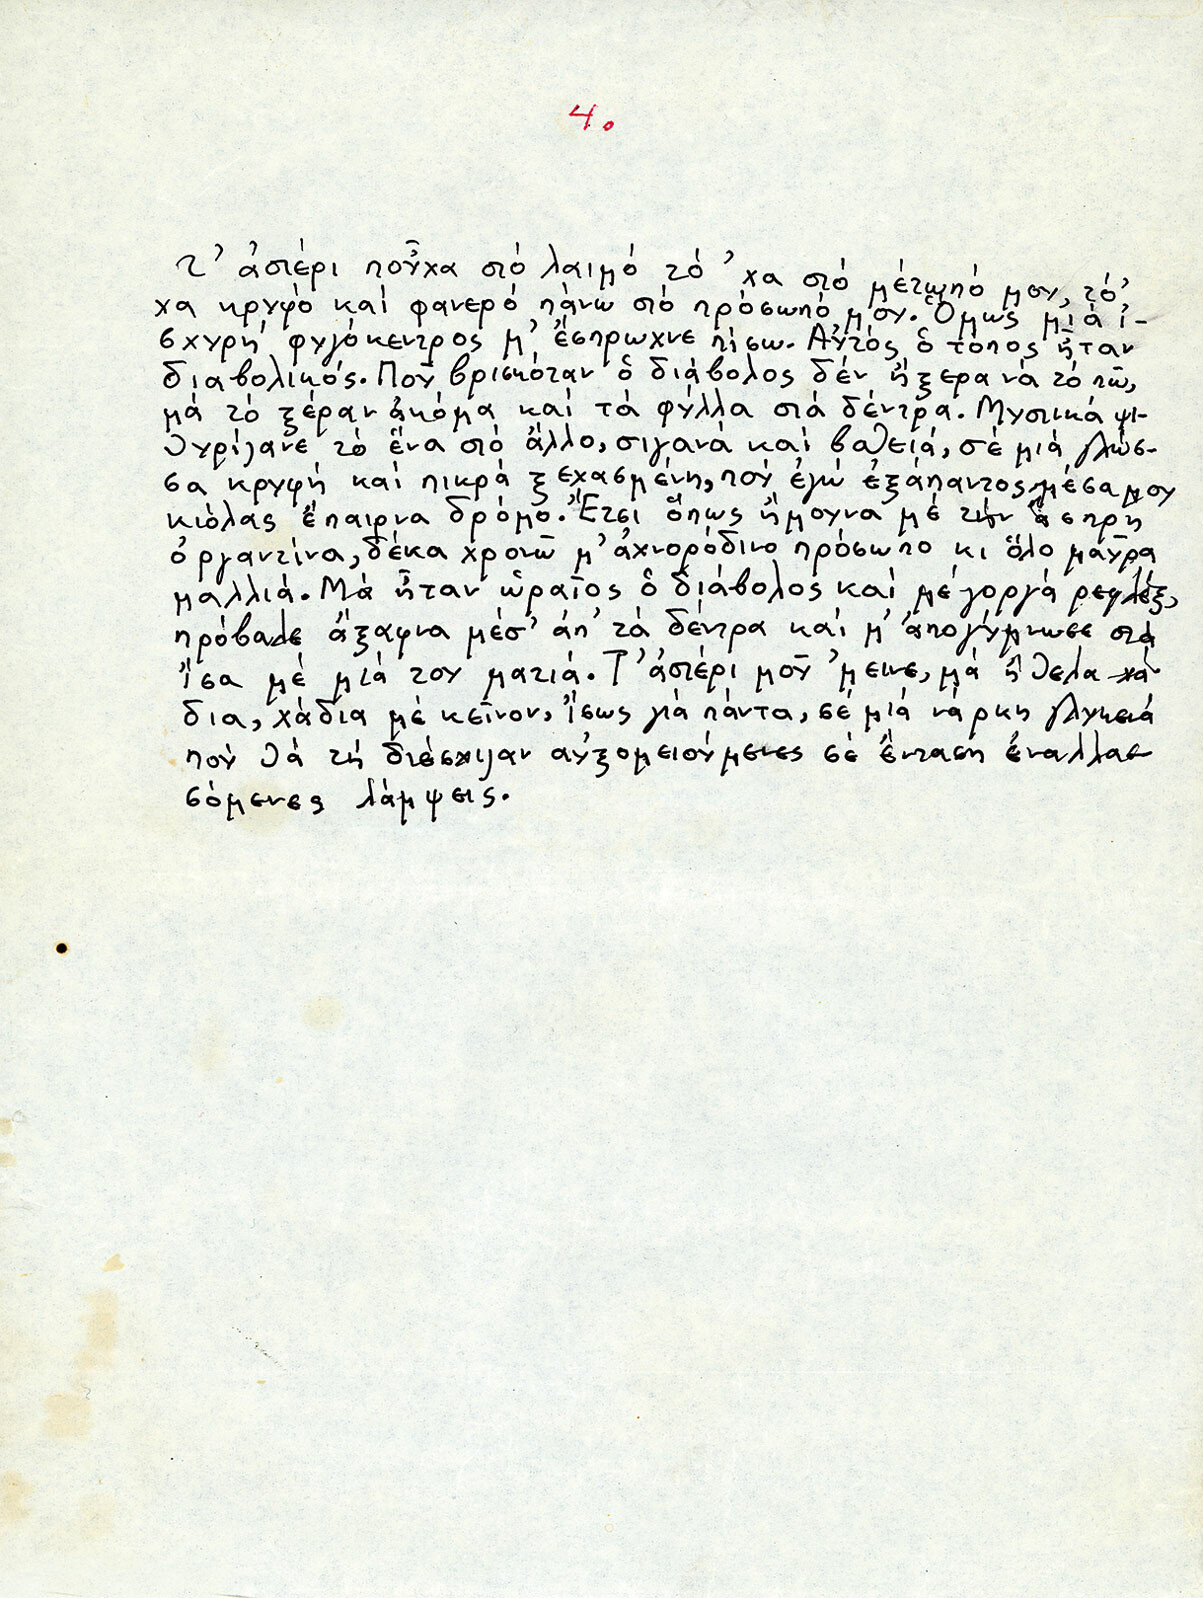 4.
τ' ἀστέρι ποὖχα στό λαιμό τό 'χα στό μέτωπό μου, τό'
χα κρυφό καί φανερό πάνω στό πρόσωπό μου. Ὅμως μιά ἰ-
σχυρή φυγόκεντρος μ' ἔσπρωχνε πίσω. Αὐτός ὁ τόπος ἦταν
διαβολικός. Ποῦ βρισκόταν ὁ διάβολος δέν ἤξερα νά τό πῶ,
μά τό ξέραν ἀκόμα καί τά φύλλα στά δέντρα. Μυστικά ψι-
θυρίζανε τό ἕνα στό ἄλλο, σιγανά καί βαθειά, σέ μιά γλώσ-
σα κρυφή καί πικρά ξεχασμένη, πού ἐγώ ἐξάπαντος μέσα μου
κιόλας ἔπαιρνα δρόμο. Ἔτσι ὅπως ἤμουνα μέ τήν ἄσπρη
ὀργαντίνα, δέκα χρονῶ μ' ἀχνορόδινο πρόσωπο κι ὅλο μαῦρα
μαλλιά. Μά ἦταν ὡραῖος ὁ διάβολος καί μέ γοργά ρεφλέξ,
πρόβαλε ἄξαφνα μέσ' ἀπ' τά δέντρα καί μ' ἀπογύμνωσε στά
ἴσα μέ μιά του ματιά. Τ' ἀστέρι μοῦ 'μεινε, μά ἤθελα χά
δια, χάδια μέ κεῖνον, ἴσως γιά πάντα, σέ μιά νάρκη γλυκειά
πού θά τή διέσχιζαν αὐξομειούμενες σέ ἔνταση ἐναλλασ
σόμενες λάμψεις.